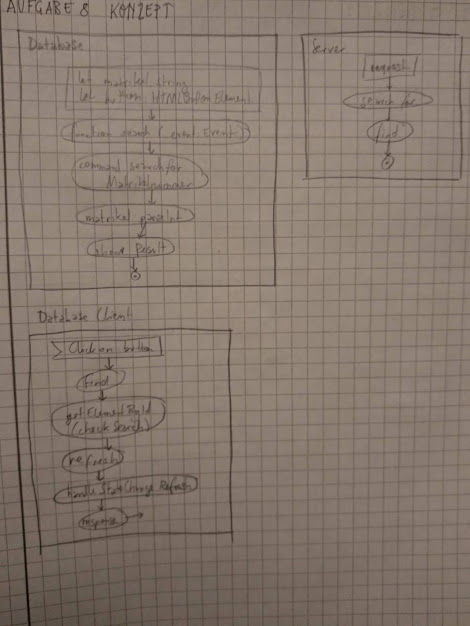 AUFGABE 8 KONZEPT
Database
let matrikel string
let button HTMLButtonElement
function search (event Event)
command searchfor
Matrikelnummer
matrikel parseInt
show Result
Server
request
search for
find
Database Client
> Click on button
Find
getElementById
(check Search)
refresh
handleStateChange Refresh
response